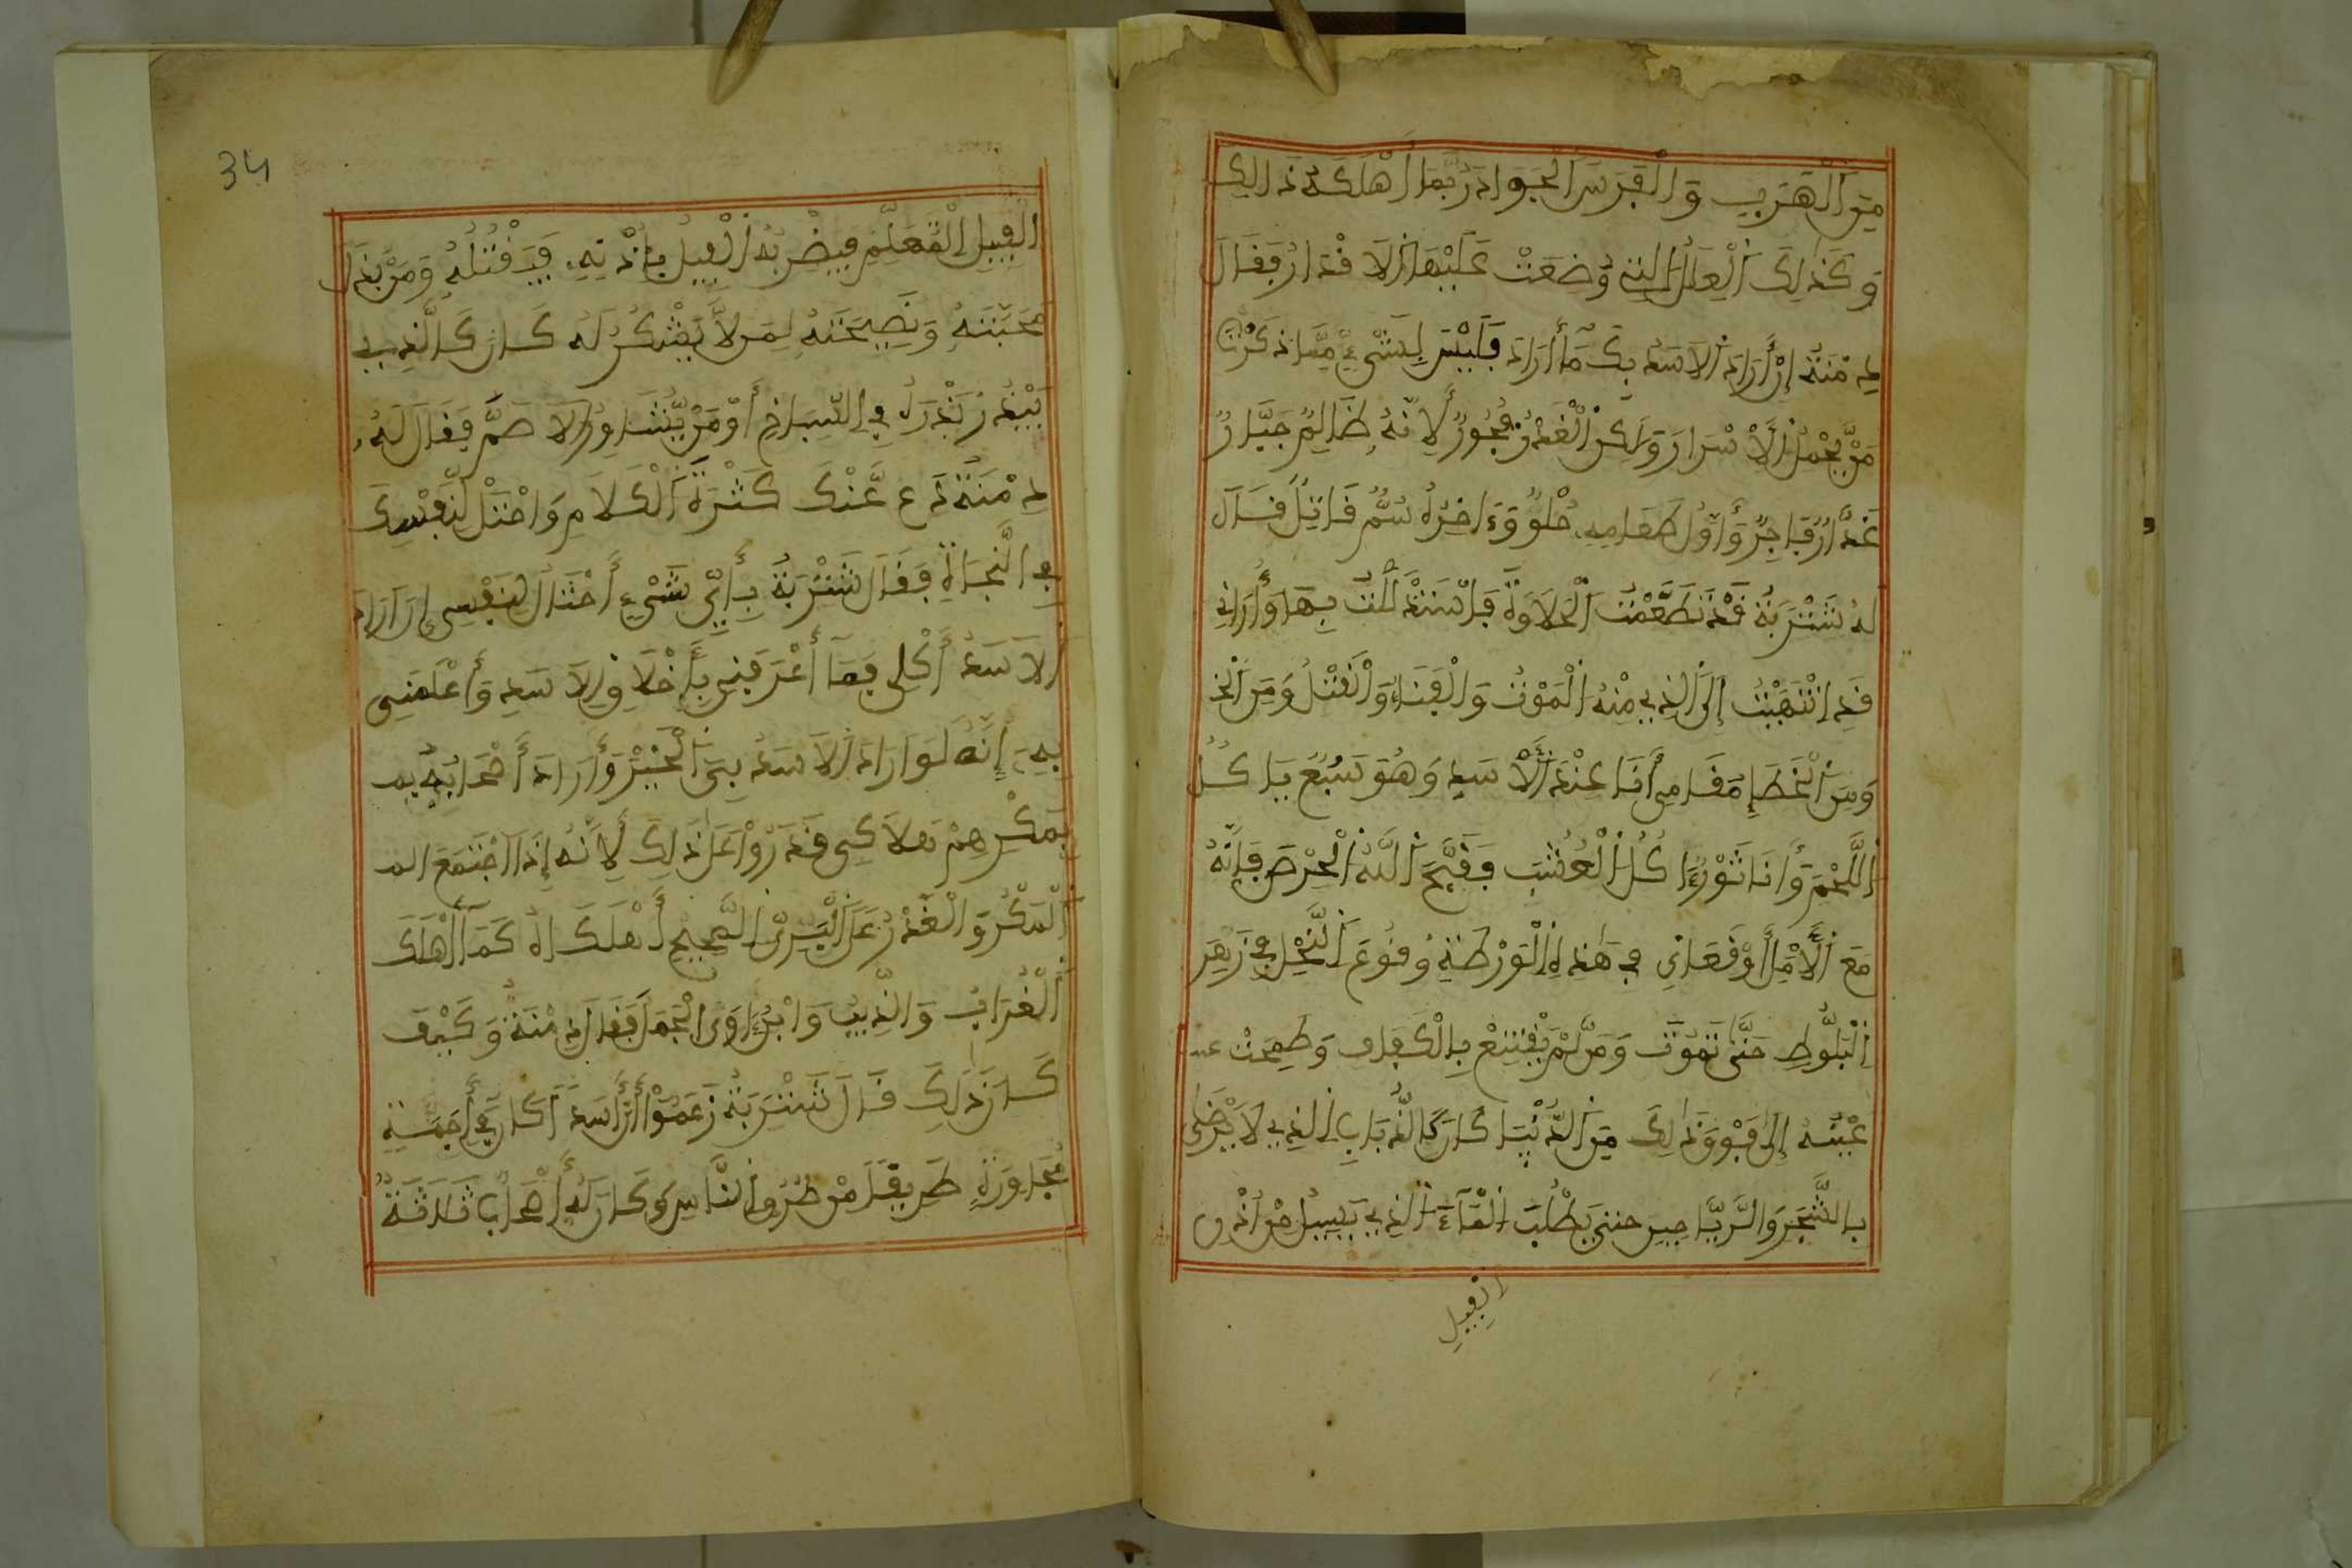 مِنَ الْهَرَبِ وَالْفَرَسَ الْجَوَادَ رُبَّمَا أَهْلَكَهُ ذَالِكَ
وَكَذَٰلِكَ الْعِلَلُ الَّتِي وُضِعَتْ عَلَيْهَا الَاقْدَارُ فَقَالَ
دِمْنَةُ إِنْ أَرَادَ الَاسَدُ بِكَ مَا أَرَادَ فَلَيْسَ لِشَيْءٍ مِمَّا ذَكَرْتَ
مَنْ يَحْمِلُ الَاسْرَارَ وَلَكِنِ الْغَدْرُ فُجُورٌ لِأَنَّهُ ظَالِمٌ جَبَّارٌ
غَدَّارٌ فَاجِرٌ وَأَوَّلُ طَعَامِهِ حُلْوٌ وَءَاخِرُهُ سُمٌّ قَاتِلٌ قَالَ
لَهُ شَتْرَبَةُ قَدْ تَطَعَّمْتُ الْحَلَاوَةَ فَاسْتَلْذَذْتُ بِهَا وَأُرَانِي
قَدِ انْتَهَيْتُ إِلَى الَّذِي مِنْهُ الْمَوْتُ وَالْفَنَاءُ وَالْقَتْلُ وَمِنَ
وَمِنَ الْخَطَإِ مَقَامِي أَنَا عِنْدَ الَاسَدِ وَهُوَ سَبُعٌ يَاكُلُ
اللَّحْمَ وَأَنَا ثَوْرٌ ءَاكُلُ الْعُشْبَ فَقَبَّحَ اللَّهُ الْحِرْصَ فَإِنَّهُ
مَعَ الَامَلِ أَوْقَعَانِي فِي هَٰذِهِ الْوَرْطَةِ وُقُوعَ النَّحْلِ فِي زَهْرِ
الْبَلُّوطِ حَتَّى تَمُوتَ وَمَن لَّمْ يَقْتَنِعْ بِالْكَفَافِ وَطَمِحَتْ
عَيْنُهُ إِلَى فَوْقَ ذَٰلِكَ مِنَ الدُّنْيَا كَانَ كَالذُّبَابِ الَّذِي لَا يَرْضَىٰ
بِالشَّجَرِ وَالرَّيَاحِينِ حَتَّى يَطْلُبَ الْمَاءَ الَّذِي يَسِيلُ مِنْ أُذُنِ
الْفِيلِ
34
الْفِيلِ الْمُغْتَلِمِ فَيَضْرِبُهُ الْفِيلُ بِأُذْنِهِ فَيَقْتُلُهُ وَمَنْ بَذَلَ
مَحَبَّتَهُ وَنَصِيحَتَهُ لِمَن لَّا يَشْكُرُ لَهُ كَانَ كَالَّذِي
يَبْذُرُ بَذْرَهُ فِي السِّبَاخِ أَوْ مَنْ يُشَاوِرُ الَاصَمَّ فَقَالَ لَهُ
دِمْنَةُ دَعْ عَنْكَ كَثْرَةَ الْكَلَامِ وَاحْتَلْ لِنَفْسِكَ
فِي النَّجَاةِ فَقَالَ شَتْرَبَةُ بِأَيِّ شَيْءٍ أَحْتَالُ لِنَفْسِي إِنْ أَرَادَ
الَاسَدُ أَكْلِي فَمَا أَعْرَفَنِي بِأَخْلَاقِ الَاسَدِ وَأَعْلَمَنِي
بِهِ إِنَّهُ لَوْ أَرَادَ الَاسَدُ بِيَ الْخَيْرَ وَأَرَادَ أَصْحَابُهُ بِ
بِمَكْرِهِمْ هَلَاكِي قَدَرُوا عَلَى ذَٰلِكَ لِأَنَّهُ إِذَا اجْتَمَعَ
الْمَكْرُ وَالْغَدْرُ عَلَى الْبَرِيِّ الصَّحِيحِ أَهْلَكَاهُ كَمَا أَهْلَكَ
الْغُرَابُ وَالذِّيبُ وَابْنُ ءَاوَى الْجَمَلَ فَقَالَ دِمْنَةُ وَكَيْفَ
كَانَ ذَٰلِكَ قَالَ شَتْرَبَةُ زَعَمُوا أَنَّ أَسَدًا كَانَ فِي أَجَمَةٍ
مُجَاوِرَةٍ طَرِيقًا مِنْ طُرُقِ النَّاسِ وَكَانَ لَهُ أَصْحَابٌ ثَلَاثَةٌ